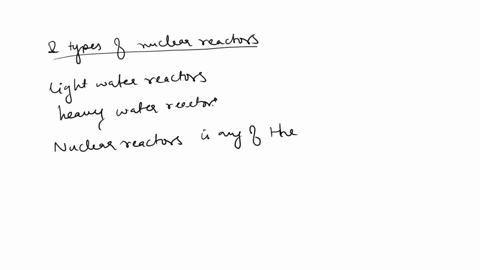 2 types of nuclear reactors
Light water reactors
heavy water reactors
Nuclear reactors is any of the